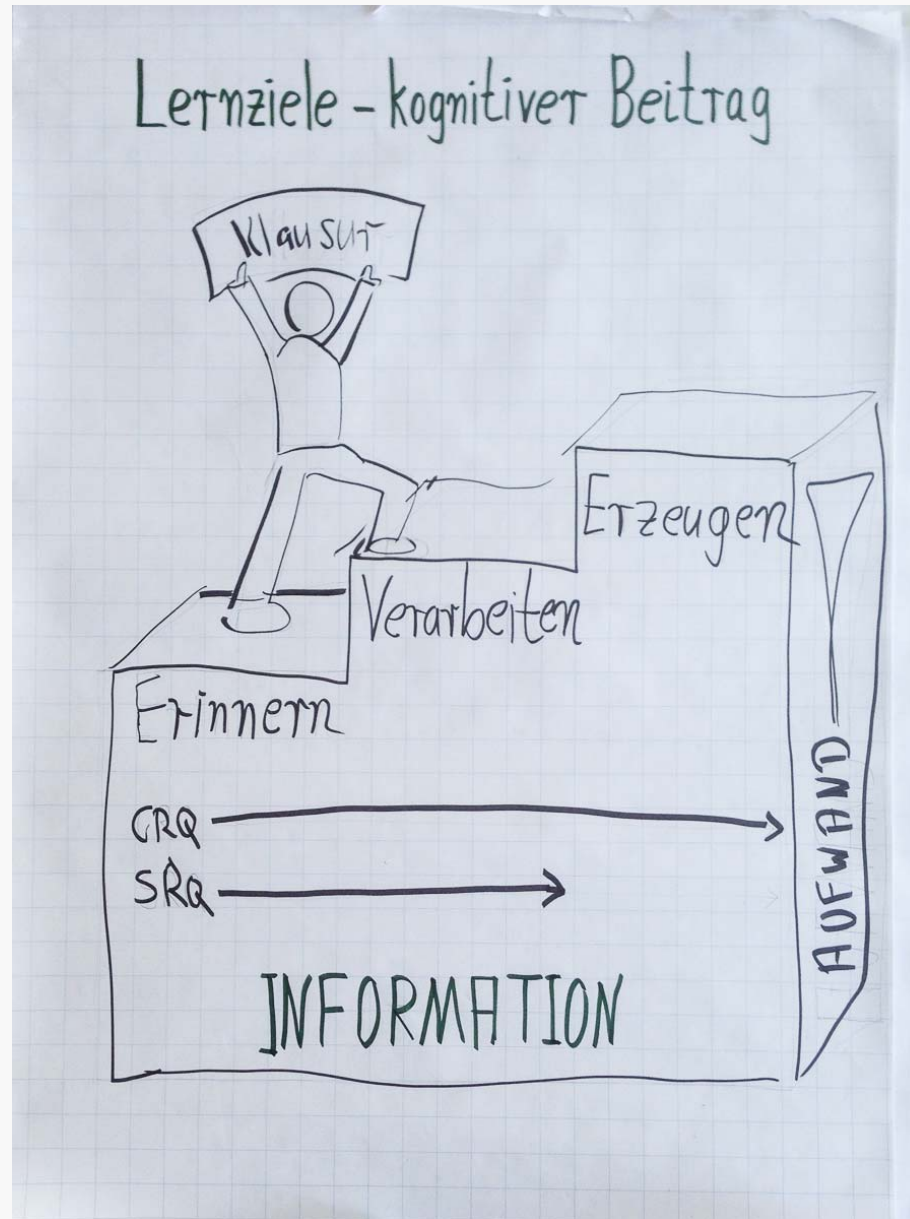 Lernziele - kognitiver Beitrag
Klausur
Erzeugen
Verarbeiten
Erinnern
CRQ
SRQ
AUFWAND
INFORMATION